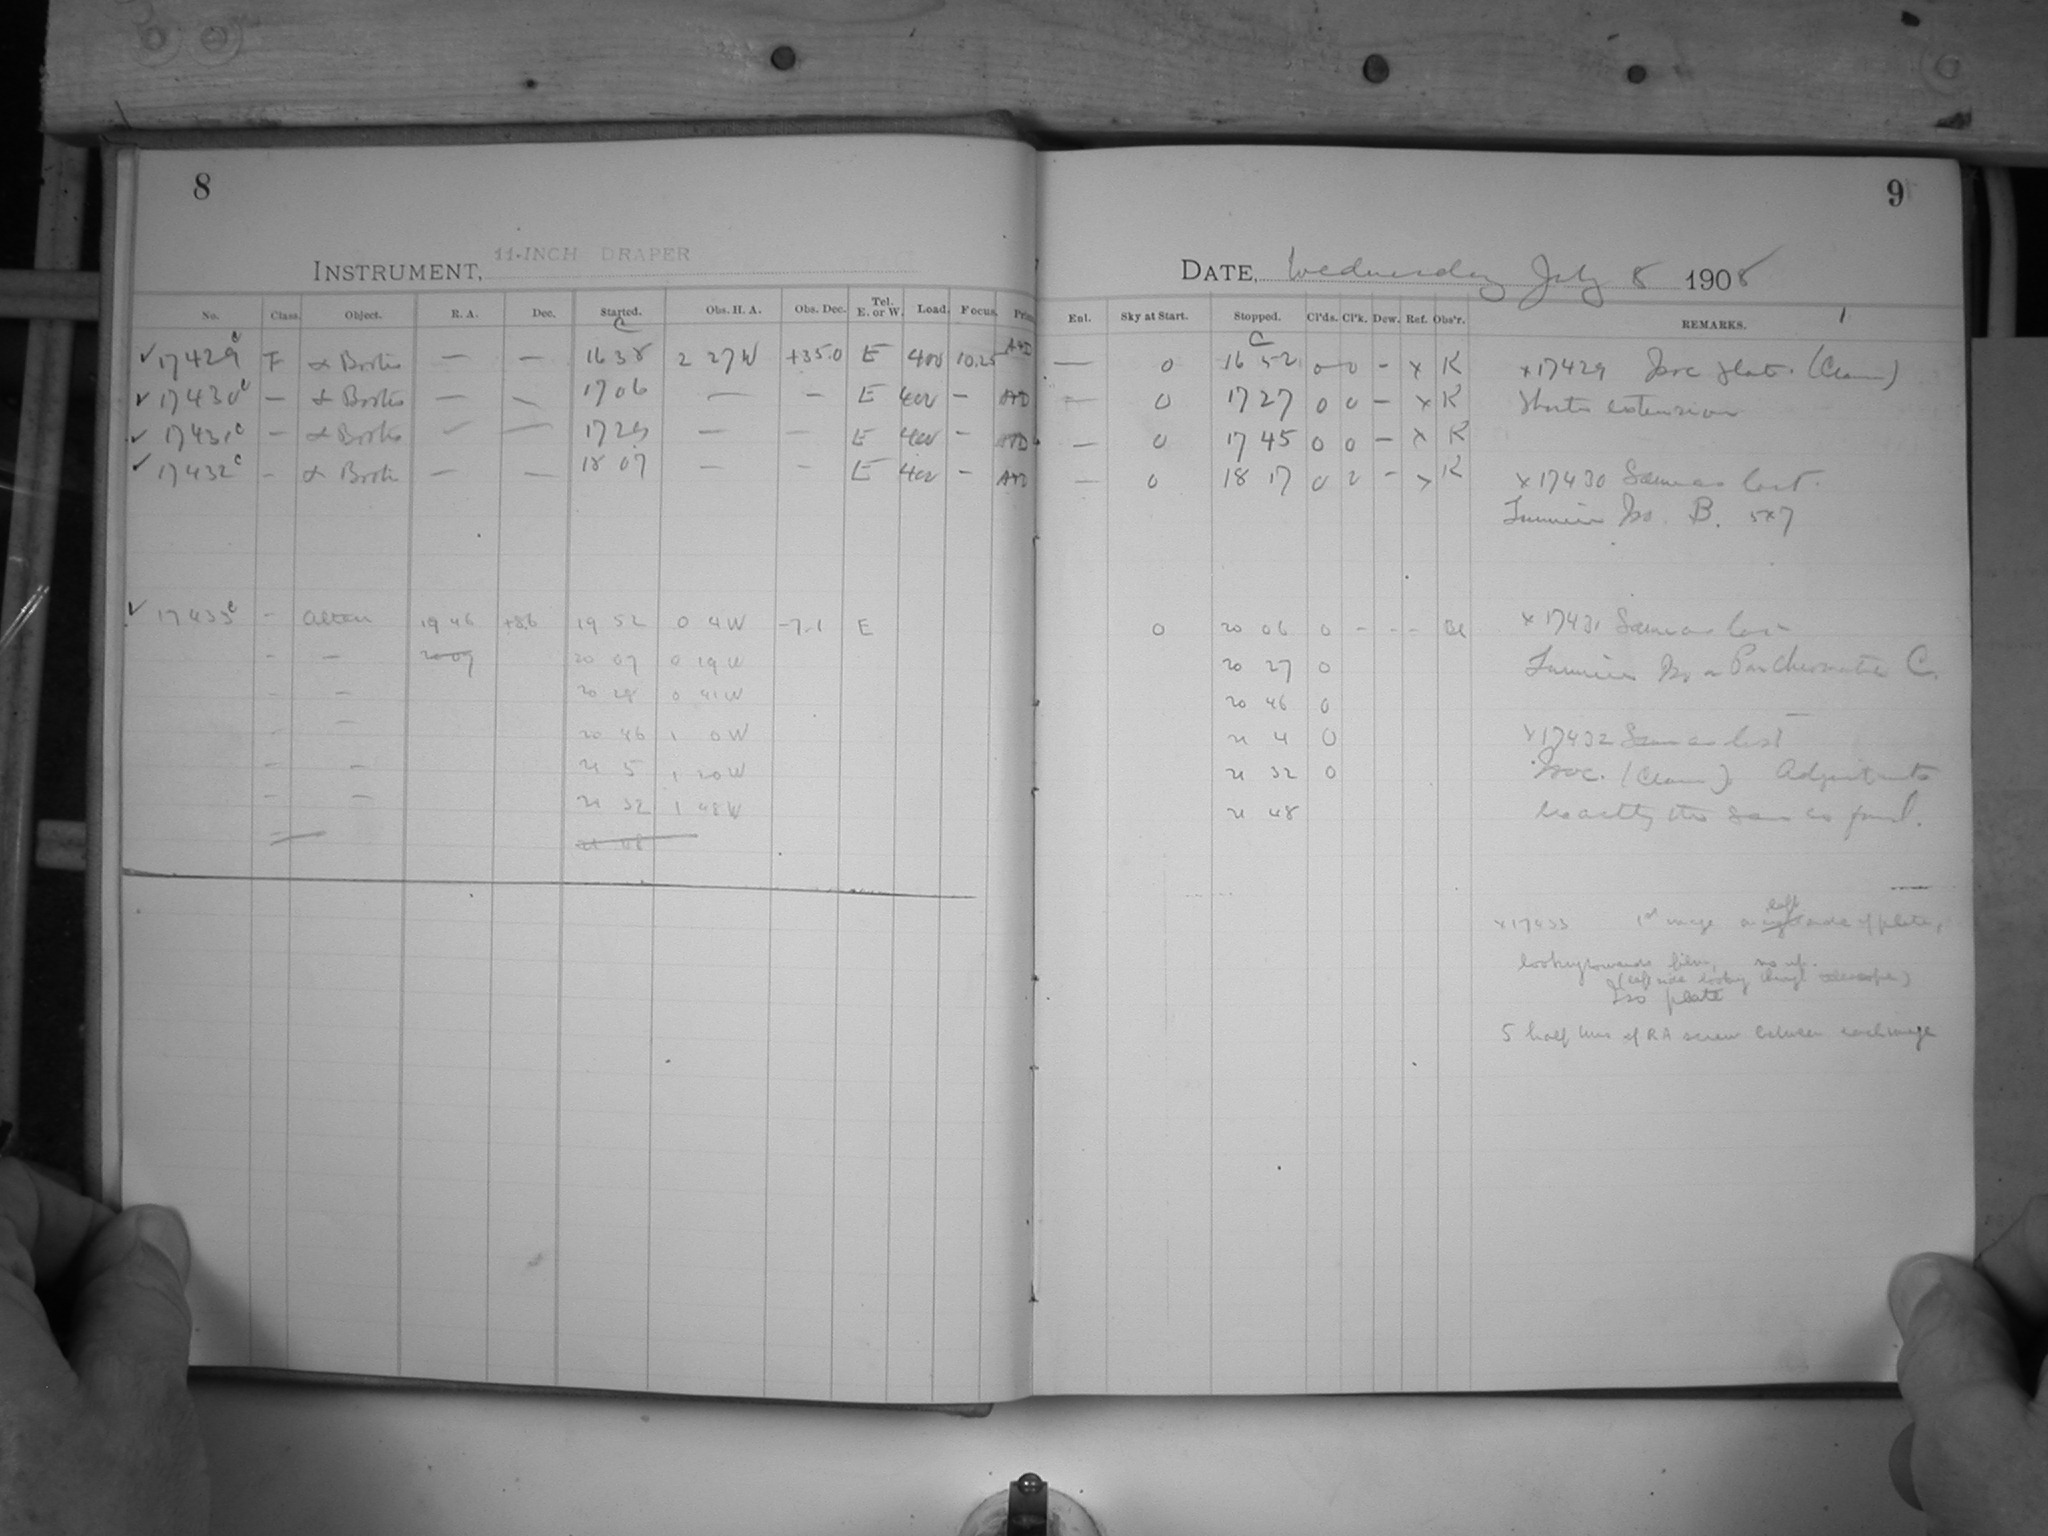 8
INSTRUMENT, 11-INCH DRAPER
No. Class. Object. R. A. Dec. Started. Obs. H. A. Obs. Dec. Tel. E. or W. Load. Focus.
C
✓ 17429 c F α Bootis — — 16 38 2 27 W +35.0 E 400 10.25
✓ 17430 c — α Bootis — — 17 06 — — E 400 —
✓ 17431 c — α Bootis — — 17 29 — — E 400 —
✓ 17432 c — α Bootis — — 18 07 — — E 400 —
✓ 17433 c — Altair 19 46 +8.6 19 52 0 4 W -7.1 E
- — 20 09 20 07 0 19 W
- — 20 28 0 41 W
- — 20 46 1 0 W
- — 21 5 1 20 W
- — 21 32 1 48 W
21 48
9
DATE, Wednesday July 8 1908
Enl. Sky at Start. Stopped. Cl'ds. Cl'k. Dew. Ref. Obs'r. REMARKS.
C
— 0 16 52 0 0 - x K x 17429 Isoc plate. (Cram)
— 0 17 27 0 0 - x K Shorter extension
— 0 17 45 0 0 - x K
— 0 18 17 0 2 - x K x 17430 Same as last.
Lumiere Iso. B. 5x7
0 20 06 0 - - - x 17431 Same as last
20 27 0 Lumiere Panchromatic C.
20 46 0
21 4 0 x 17432 Same as last
21 32 0 Isoc. (Cram) Adjustments
21 48 exactly the same as
x 17433 1st image on left side of plate,
looking towards film, no up.
(left side looking through telescope)
Iso plate
5 half turns of RA screw between each image